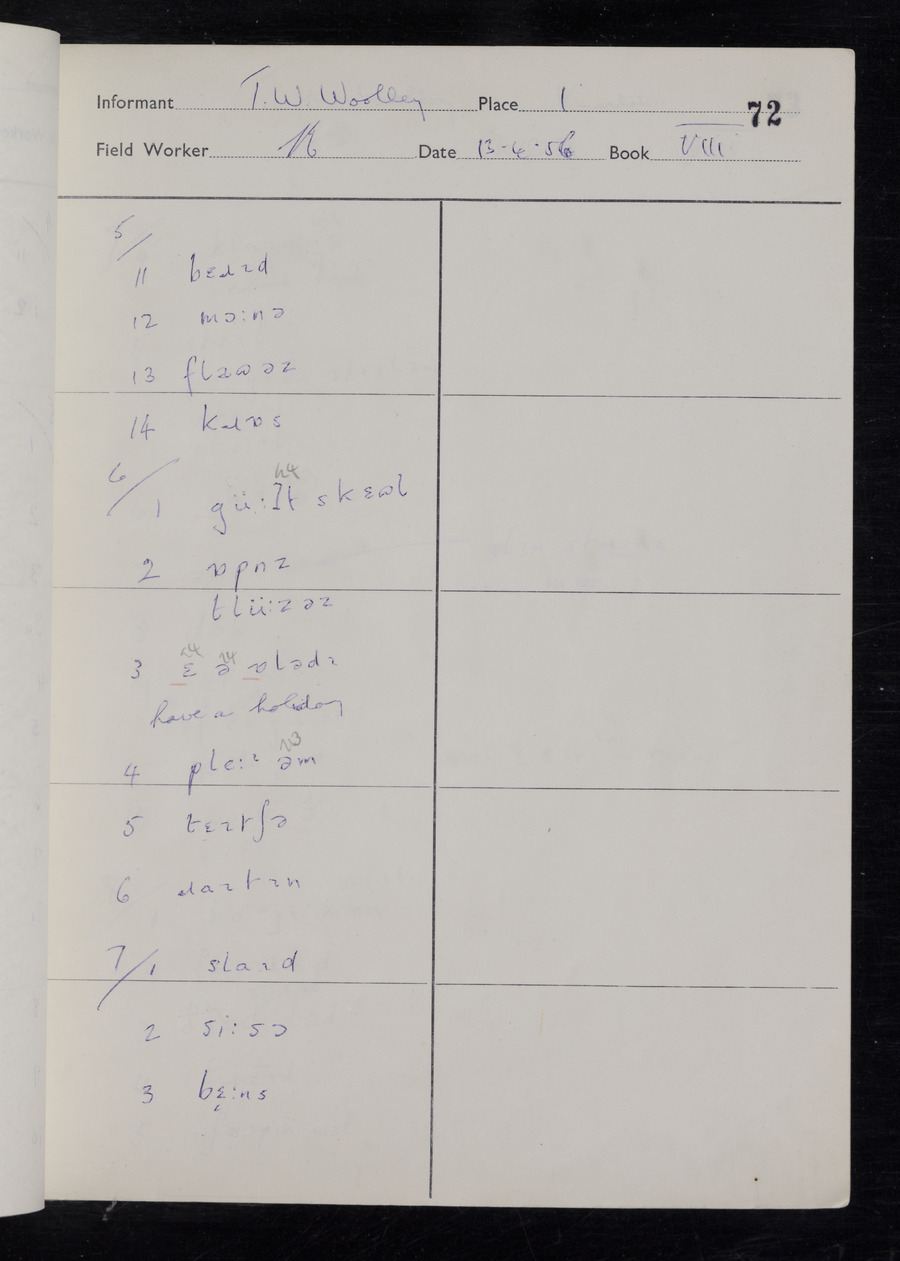 Informant T. W. Woolley Place 1 72
Field Worker Date 13-4-56 Book VIII
5/
11 bɛɹɪd
12 mɔːnə
13 flaʊəz
14 kɹɒs
6/
1 n4
gü:It skɛʊl
2 ɒpnz
tlü:zəz
3 ɛ ə ɒlədɪ
have a holiday
4 pleːɪ əm
5 tɛɪtʃə
6 daɪtɪn
7/1 slaɪd
2 siːsɔ
3 bɛ̣ːns